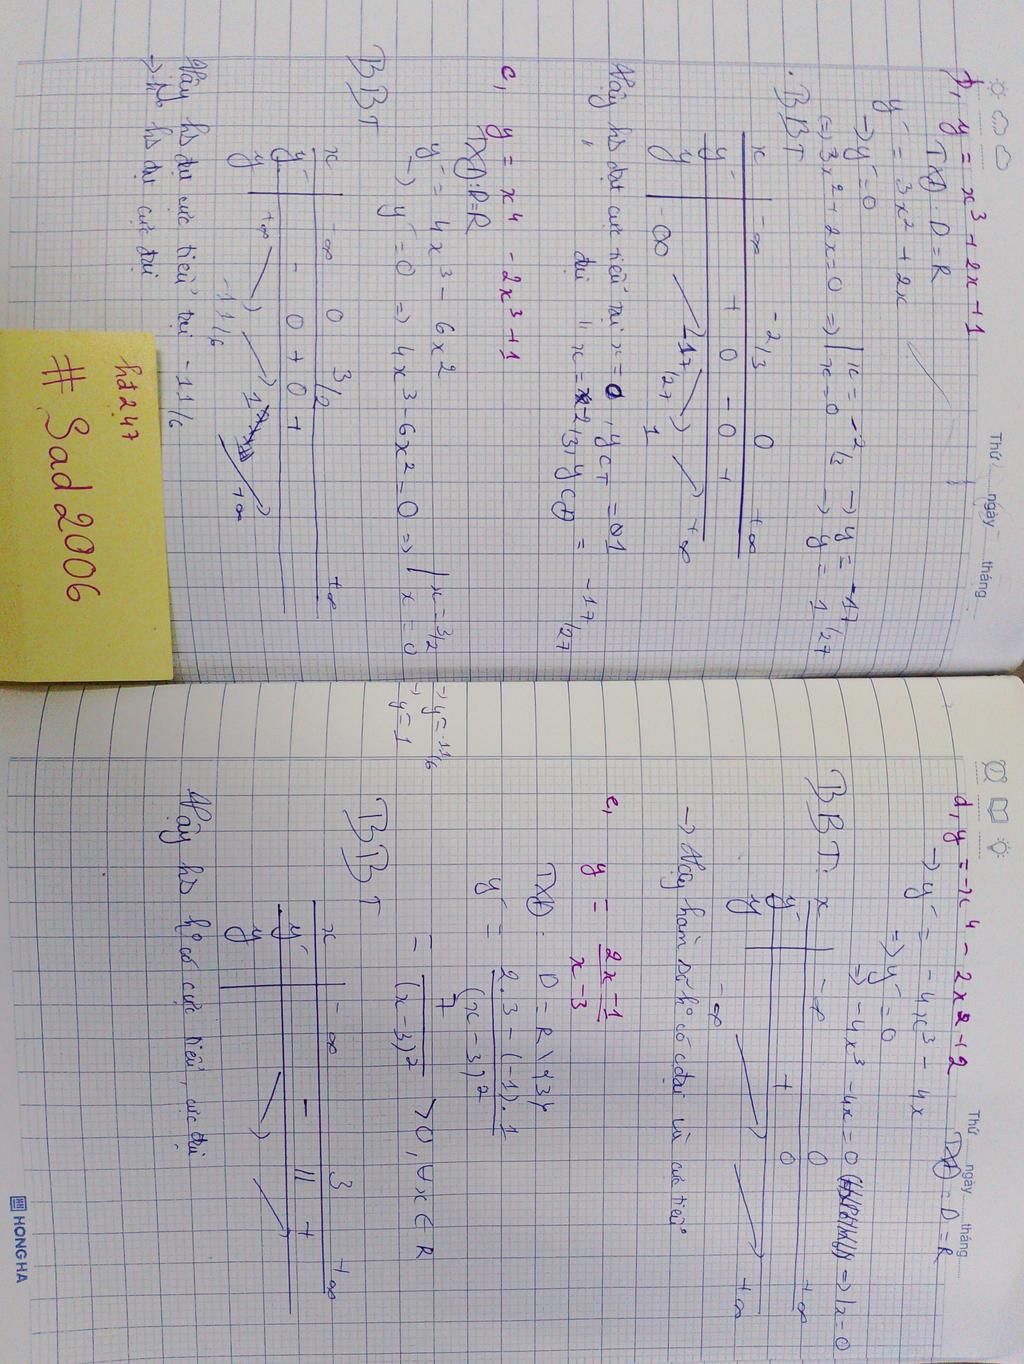 Thứ ngày tháng
b, y = x³ + 2x + 1
TXĐ: D = R
y' = 3x² + 2x
→ y' = 0
⇒ 3x² + 2x = 0 ⇒ | x = -2/3 → y = -17/27
x = 0 → y = 1
BBT
x -∞ -2/3 0 +∞
y' + 0 - 0 +
y -∞ 17/27 1 +∞
Vậy hs đạt cực tiểu tại x = 0, yCT = 1
" đại " x = -2/3, yCĐ = -17/27
c, y = x⁴ - 2x³ + 1
TXĐ: D = R
y' = 4x³ - 6x²
→ y' = 0 ⇒ 4x³ - 6x² = 0 ⇒ | x = 3/2 → y = -11/6
x = 0 → y = 1
BBT
x -∞ 0 3/2 +∞
y' - 0 + 0 +
y +∞ -11/6 1 +∞
Vậy hs đạt cực tiểu tại -11/6
→ hs đạt cực đại
hd247
# Sad2006
Thứ ngày tháng
d, y = -x⁴ - 2x² + 2
TXĐ: D = R
→ y' = -4x³ - 4x
⇒ y' = 0
⇒ -4x³ - 4x = 0 ⇒ | x = 0
BBT:
x -∞ 0 +∞
y' + 0
y -∞ +∞
→ Vậy hàm số k° có cđại và cực tiểu
e, y = 2x-1 / x-3
TXĐ: D = R \ {3}
y' = 2.3 - (-1).1 / (x-3)²
= 7 / (x-3)² > 0, ∀x ∈ R
BBT
x -∞ 3 +∞
y' - || +
y
Vậy hs k° có cực tiểu, cực đại
HONG HA